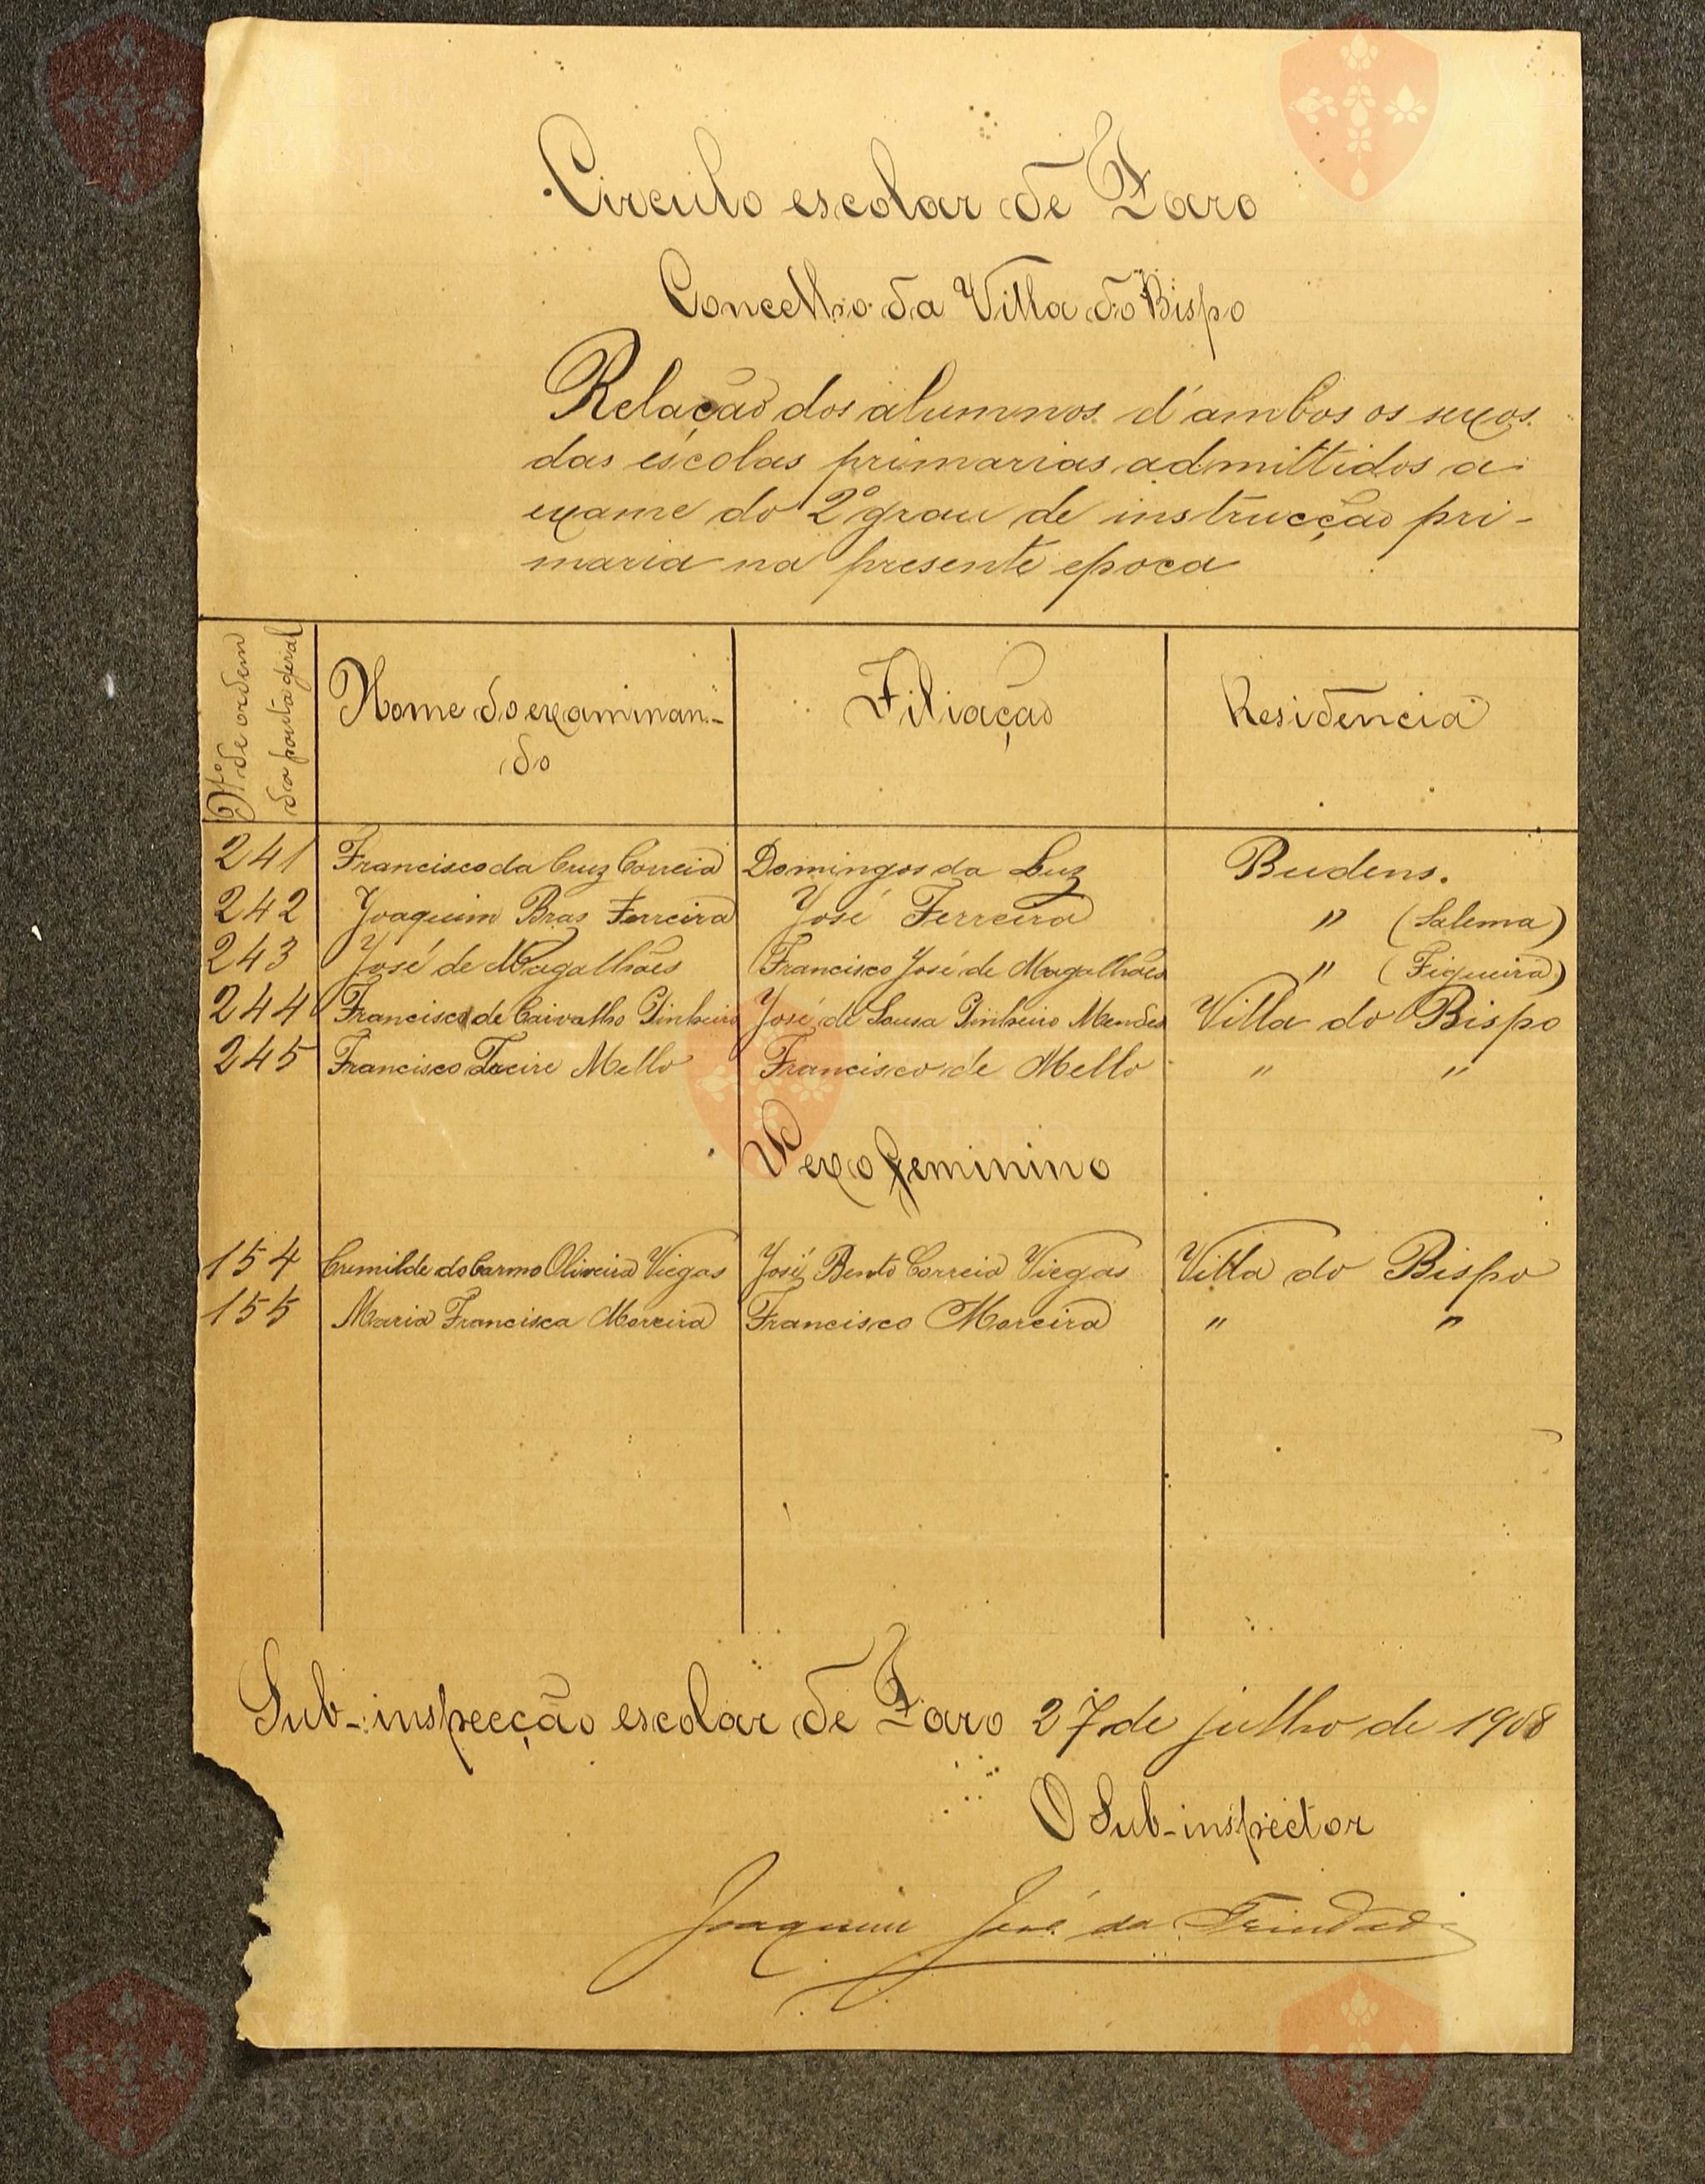 Circulo escolar de Faro
Concelho da Villa do Bispo
Relação dos alumnos d'ambos os sexos
das escolas primarias admittidos a
exame do 2º grau de instrucção pri-
maria na presente epoca
Nº de ordem
da pauta geral
Nome do examinan-
do
Filiação
Residencia
241 Francisco da Cruz Correia Domingos da Luz Budens.
242 Joaquim Braz Ferreira José Ferreira " (Salema)
243 José de Magalhães Francisco José de Magalhães " (Figueira)
244 Francisco de Carvalho Pinheiro José de Sousa Pinheiro Mendes Villa do Bispo
245 Francisco Mello Francisco de Mello " "
Sexo feminino
154 Cremilde do Carmo Oliveira Viegas José Bento Correia Viegas Villa do Bispo
155 Maria Francisca Moreira Francisco Moreira " "
Sub-inspecção escolar de Faro 27 de julho de 1908
O Sub-inspector
Joaquim José da Trindade